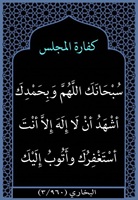 كفارة المجلس
سُبْحَانَكَ اللَّهُمَّ وَبِحَمْدِكَ
أَشْهَدُ أَنْ لَا إِلَهَ إِلاَّ أَنْتَ
أَسْتَغْفِرُكَ وَأَتُوبُ إِلَيْكَ
البخاري (٣/٩٦٠)